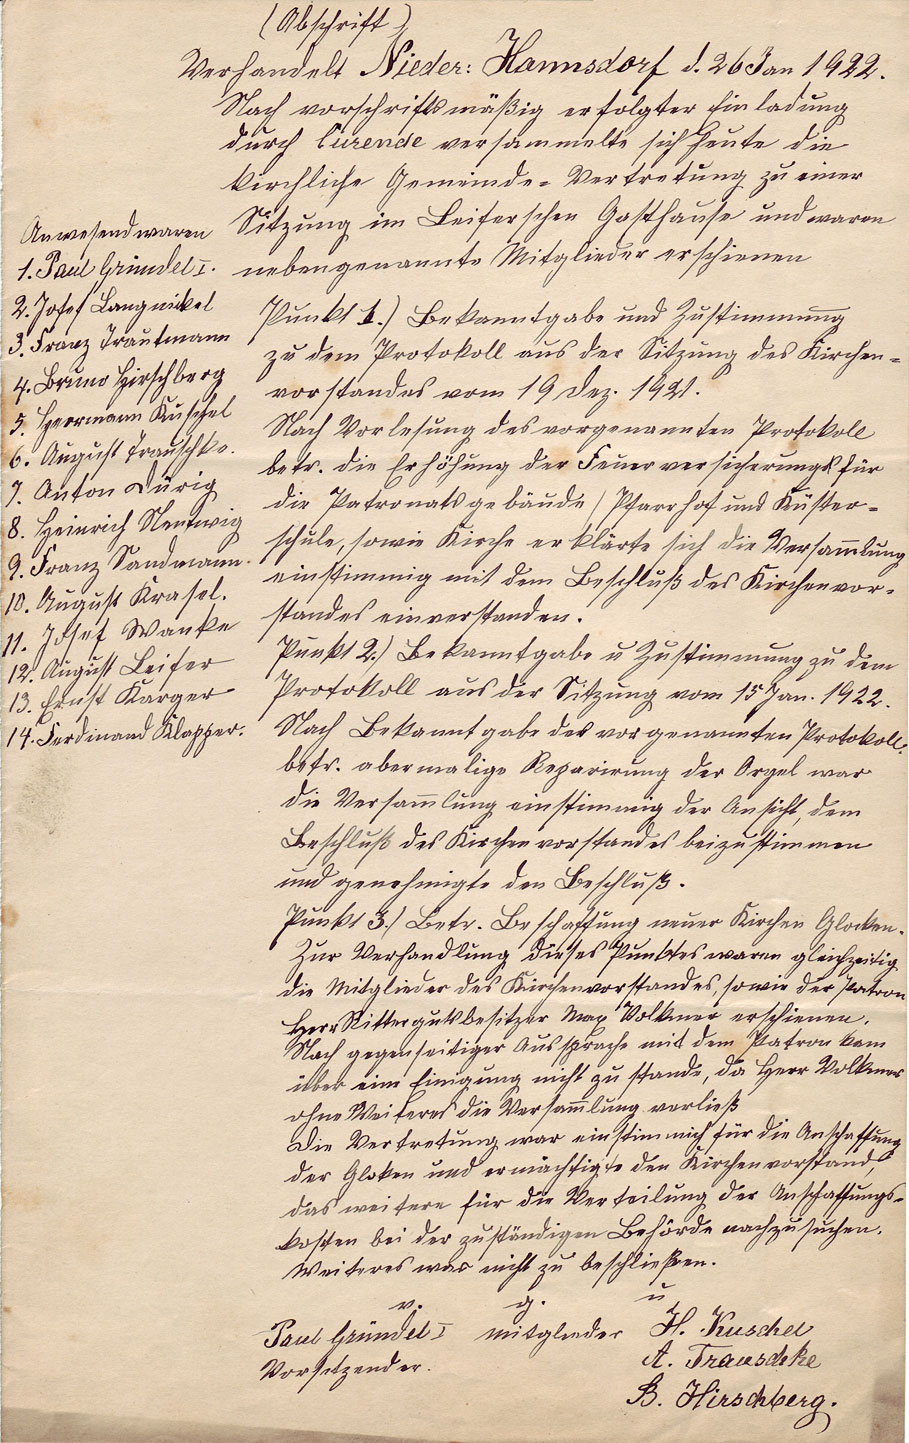 (Abschrift)
Verhandelt Nieder: Hannsdorf d. 26 Jan 1922.
Nach vorschriftsmäßig erfolgter Einladung
durch Curende versammelte sich heute die
kirchliche Gemeinde-Vertretung zu einer
Sitzung im Leiferschen Gasthause und waren
nebengenannte Mitglieder erschienen
Anwesend waren
1. Paul Gründel I.
2. Josef Langnickel
3. Franz Trautmann
4. Bruno Hirschberg
5. Herrmann Kuschel
6. August Trauschke.
7. Anton Dürig
8. Heinrich Nentwig
9. Franz Sandmann.
10. August Krasel.
11. Josef Wanke
12. August Leifer
13. Ernst Karger
14. Ferdinand Klapper.
Punkt 1.) Bekanntgabe und Zustimmung
zu dem Protokoll aus der Sitzung des Kirchen-
vorstandes vom 19 Dez. 1921.
Nach Vorlesung des vorgenannten Protokoll
betr. die Erhöhung der Feuerversicherung für
die Patronatsgebäude / Pfarrhof und Küster-
schule, sowie Kirche erklärte sich die Versam̄lung
einstimmig mit dem Beschluß des Kirchenvor-
standes einverstanden.
Punkt 2.) Bekanntgabe u Zustimmung zu dem
Protokoll aus der Sitzung vom 15 Jan. 1922.
Nach Bekanntgabe des vorgenannten Protokoll.
betr. abermalige Reparirung der Orgel war
die Versam̄lung einstimmig der Ansicht, dem
Beschluß des Kirchenvorstandes beizustimmen
und genehmigte den Beschluß.
Punkt 3.) Betr. Beschaffung neuer Kirchen Glocken.
Zur Verhandlung dieses Punktes waren gleichzeitig
die Mitglieder des Kirchenvorstandes, sowie der Patron
Herr Rittergutsbesitzer Max Volkmer erschienen.
Nach gegenseitiger Aussprache mit dem Patron kam
über eine Einigung nicht zu stande, da Herr Volkmer
ohne Weiteres die Versam̄lung verließ
Die Vertretung war einstimmich für die Anschaffung
der Gloken und ermächtigte den Kirchenvorstand,
das weitere für die Verteilung der Anschaffungs-
kosten bei der zuständigen Behörde nachzusuchen.
Weiteres war nicht zu beschließen.
v. g. u
Paul Gründel I Mitglieder H. Kuschel
Vorsitzender. A. Trauschke
B. Hirschberg.